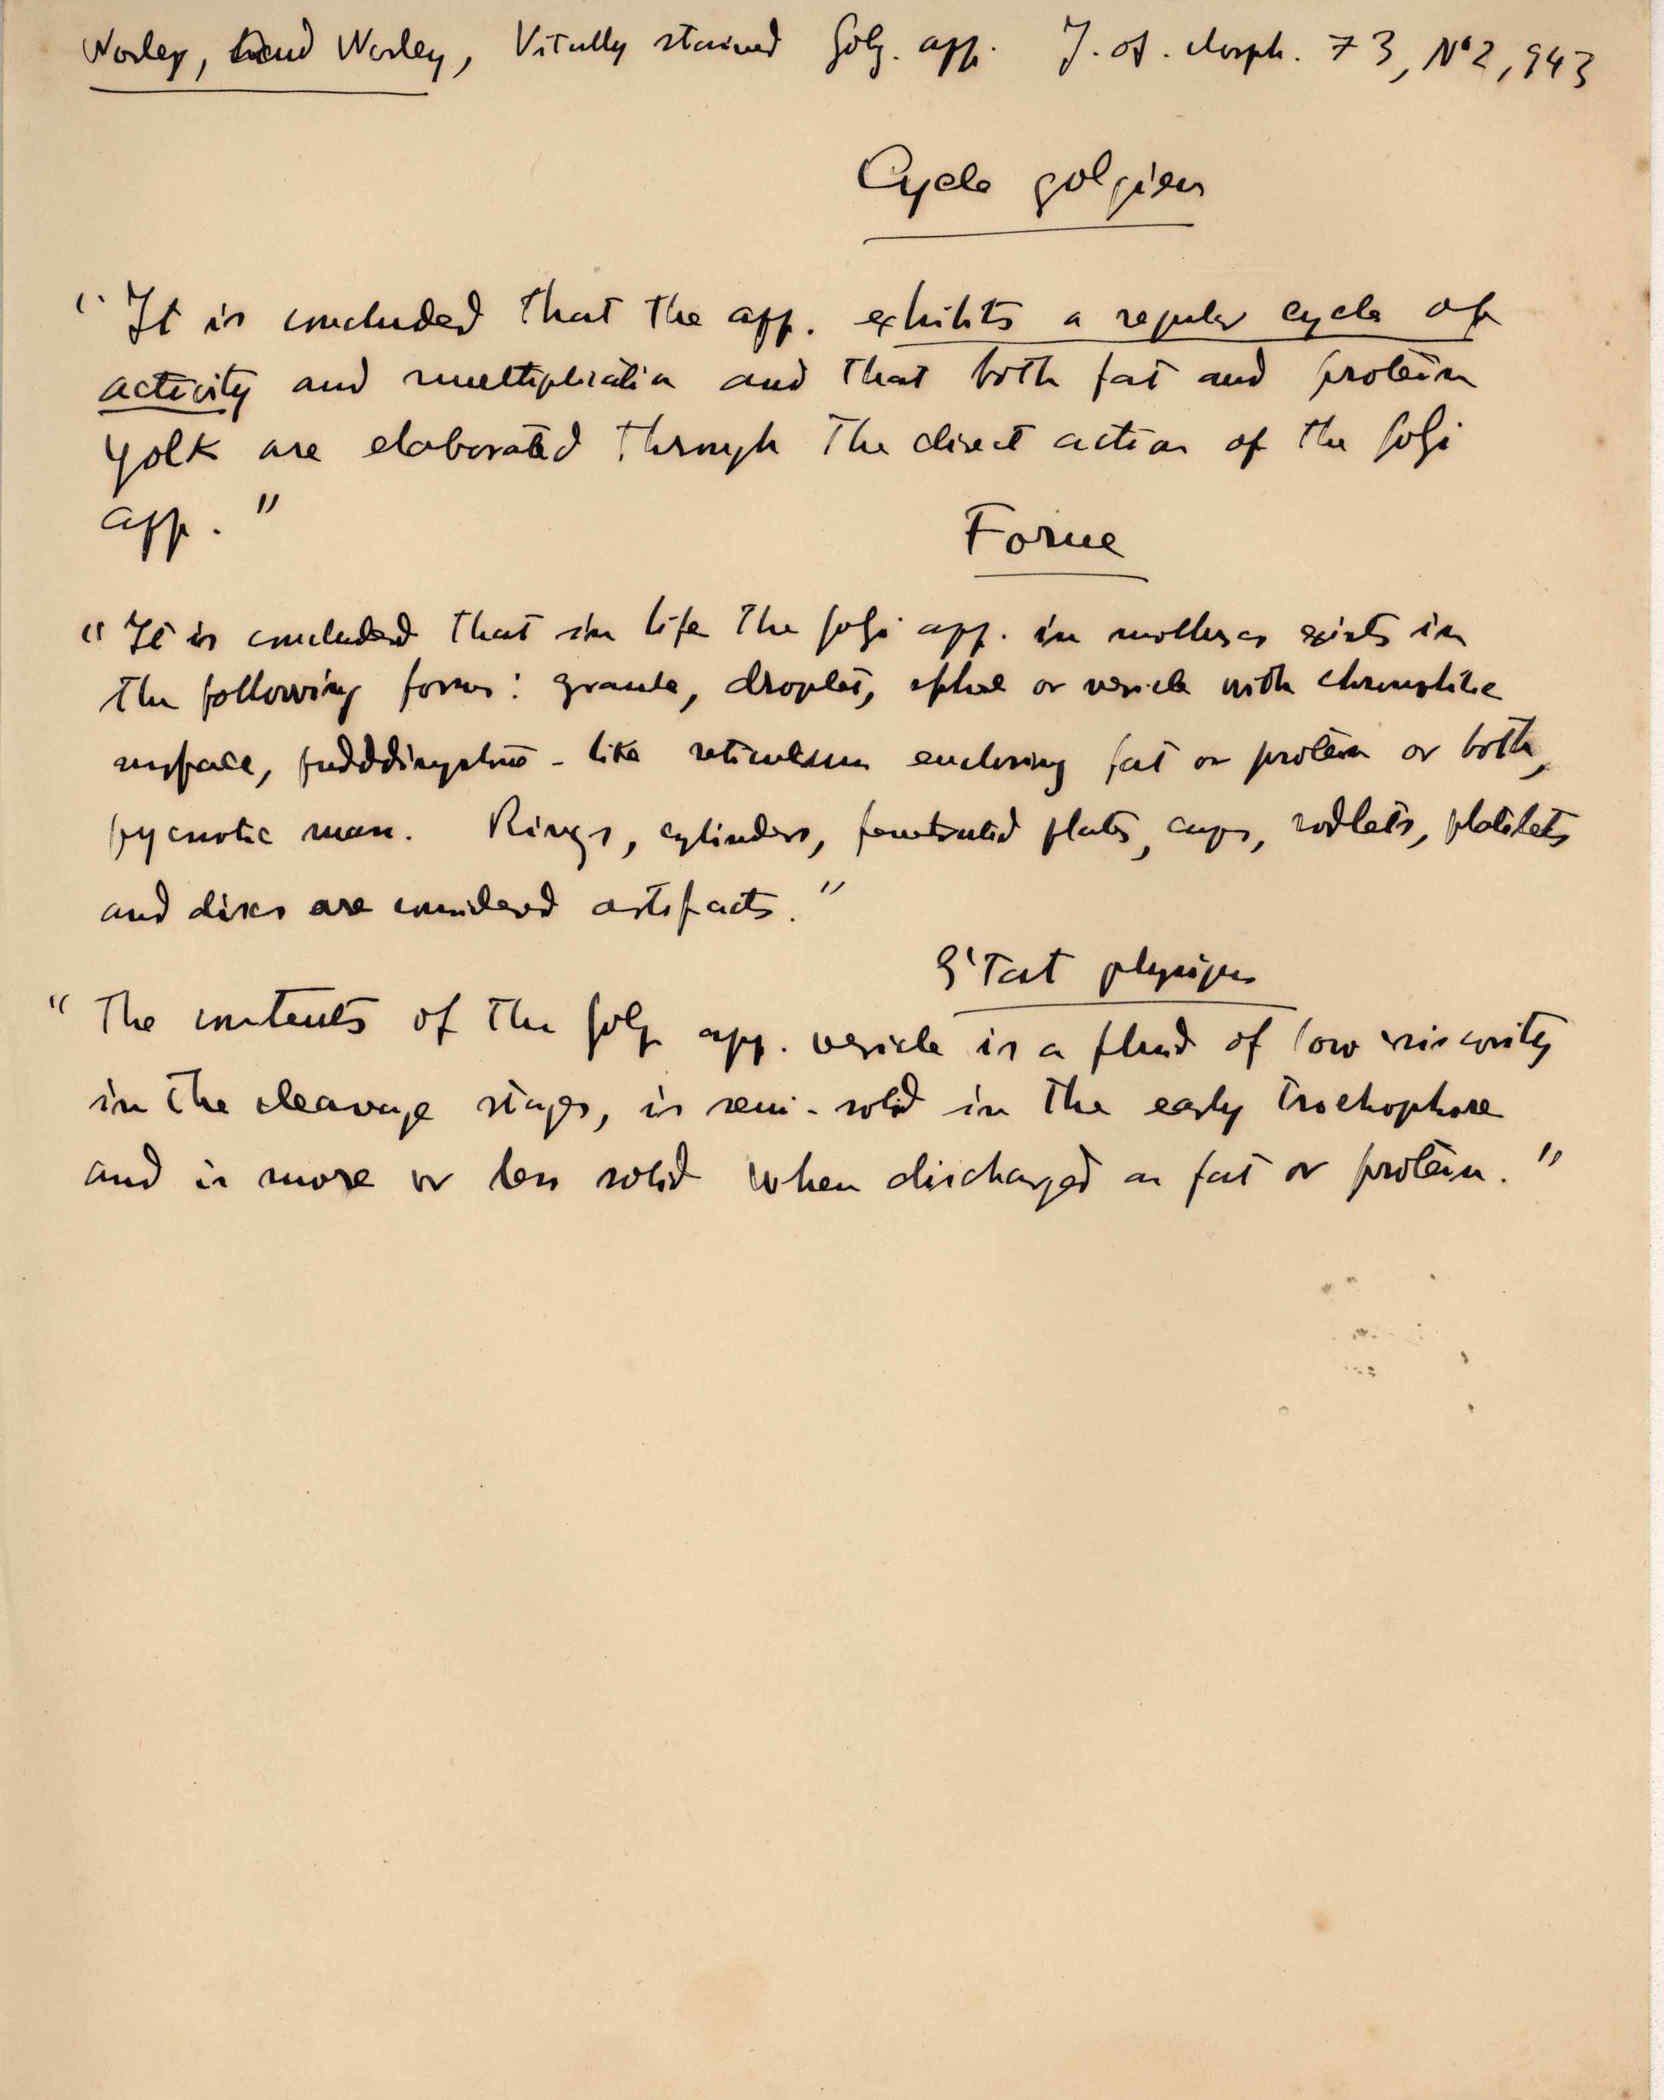 Worley, and Worley, Vitally stained Golg. app. J. of. Morph. 73, N°2, 943
Cycle golgien
"It is concluded that the app. exhibits a regular cycle of
activity and multiplication and that both fat and protein
yolk are elaborated through the direct action of the Golgi
app."
Forme
"It is concluded that in life the Golgi app. in molluscs exists in
the following forms: granule, droplet, sphere or vesicle with chromophilic
surface, puddingstone-like reticulum enclosing fat or protein or both,
pycnotic mass. Rings, cylinders, fenestrated plates, cups, rodlets, platelets
and discs are considered artifacts."
Etat physique
"The contents of the Golg. app. vesicle is a fluid of low viscosity
in the cleavage stages, is semi-solid in the early trochophore
and is more or less solid when discharged as fat or protein."